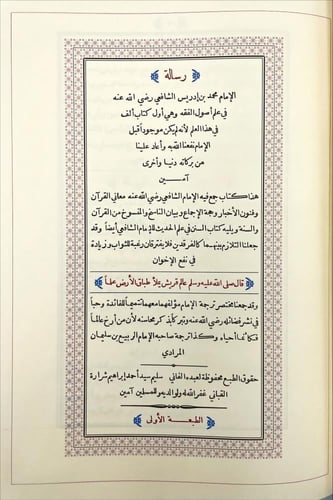 رسالة
الإمام محمد بن إدريس الشافعي رضي الله عنه
في علم أصول الفقه وهي أول كتاب ألف
في هذا العلم لأنه لم يكن موجوداً قبل
الإمام نفعنا الله به وأعاد علينا
من بركاته دنيا وأخرى
آمـــين
هذا كتاب جمع فيه الإمام الشافعي رضي الله عنه معاني القرآن
وفنون الأخبار وحجة الإجماع وبيان الناسخ والمنسوخ من القرآن
والسنة ويليه كتاب السنن في علم الحديث للإمام الشافعي أيضاً وقد
جعلنا التلازم بينهما كالفرقدين فلا يفترقان رغبة للثواب وزيادة
في نفع الإخوان
قال صلى الله عليه وسلم عالم قريش يملأ طباق الأرض علماً
وقد جعلنا مختصر ترجمة الإمام مؤلفهما معهما تتميماً للفائدة وحباً
في نشر فضائله رضي الله عنه وتبركاً بذكر محاسنه لأن من أرخ عالماً
فكأنما أحياه وكذا ترجمة صاحبه الإمام الربيع بن سليمان
المرادي
حقوق الطبع محفوظة لعبده الفاني سليم سيد أحمد إبراهيم شرارة
القباني غفر الله له ولوالديه وللمسلمين آمين
الطبعـــة الأولى